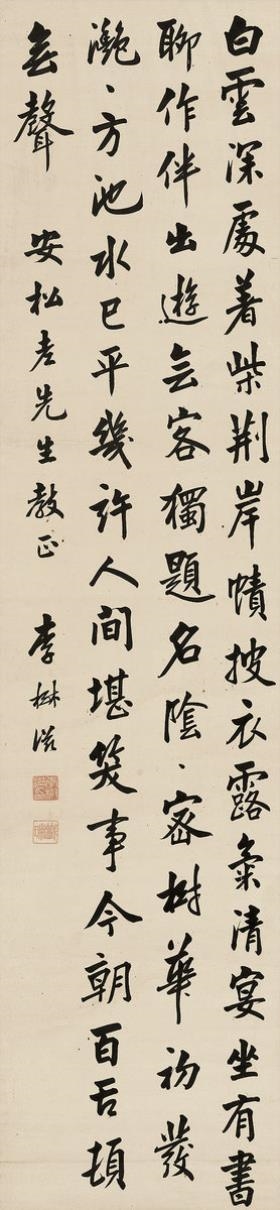 白雲深處着柴荆岸幘披衣露氣清宴坐有書
聊作伴出遊無客獨題名陰、密樹華初發
灔、方池水已平幾許人間堪笑事今朝百舌頓
無聲
安松老先生教正
李楙滋